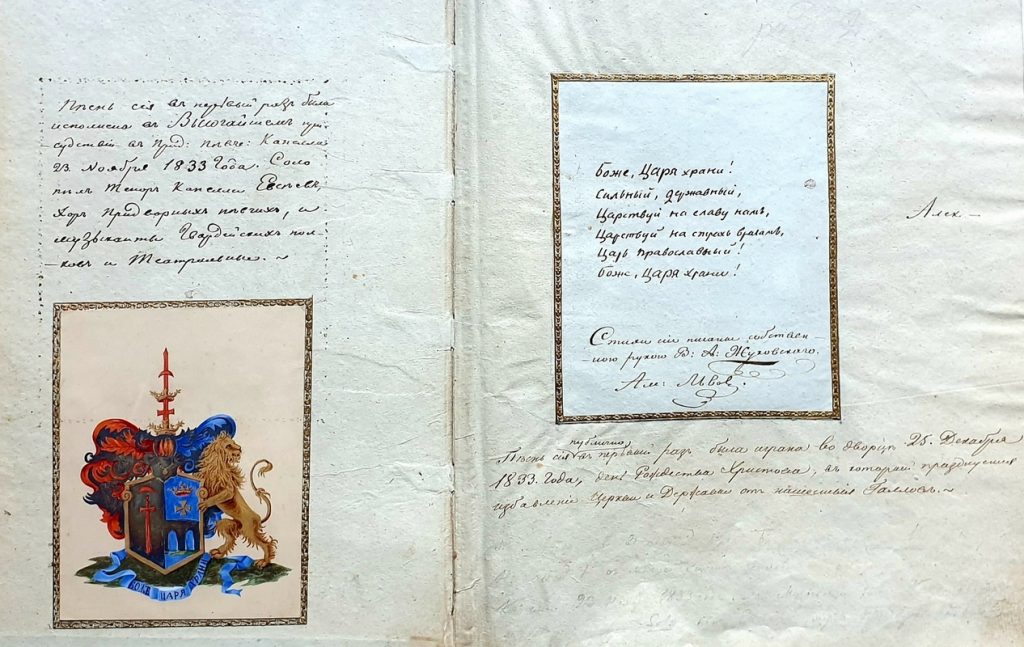 Пѣснь сія въ первый разъ была
исполнена въ Высочайшемъ при-
судствіи въ Прид: пѣвче: Капеллѣ
23. Ноября 1833 Года. Соло
пѣлъ Теноръ Капеллы
Хоръ Придворныхъ пѣвчихъ, и
музыканты Гвардейскихъ пол-
-ковъ и Театральные. ~
БОЖЕ ЦАРЯ ХРАНИ
Боже, Царя храни!
Сильный, державный,
Царствуй на славу намъ,
Царствуй на страхъ врагамъ,
Царь православный!
Боже, Царя храни!
Стихи сіи писаны собствен-
-ною рукою В: А: Жуковскаго.
Ал: Львов.
Алек -
публично
Пѣснь сія въ первый разъ была играна во дворцѣ 25. Декабря
1833. Года, день Рождества Христова, въ который празднуется
избавленіе Церкви и Державы отъ нашествія Галловъ. ~